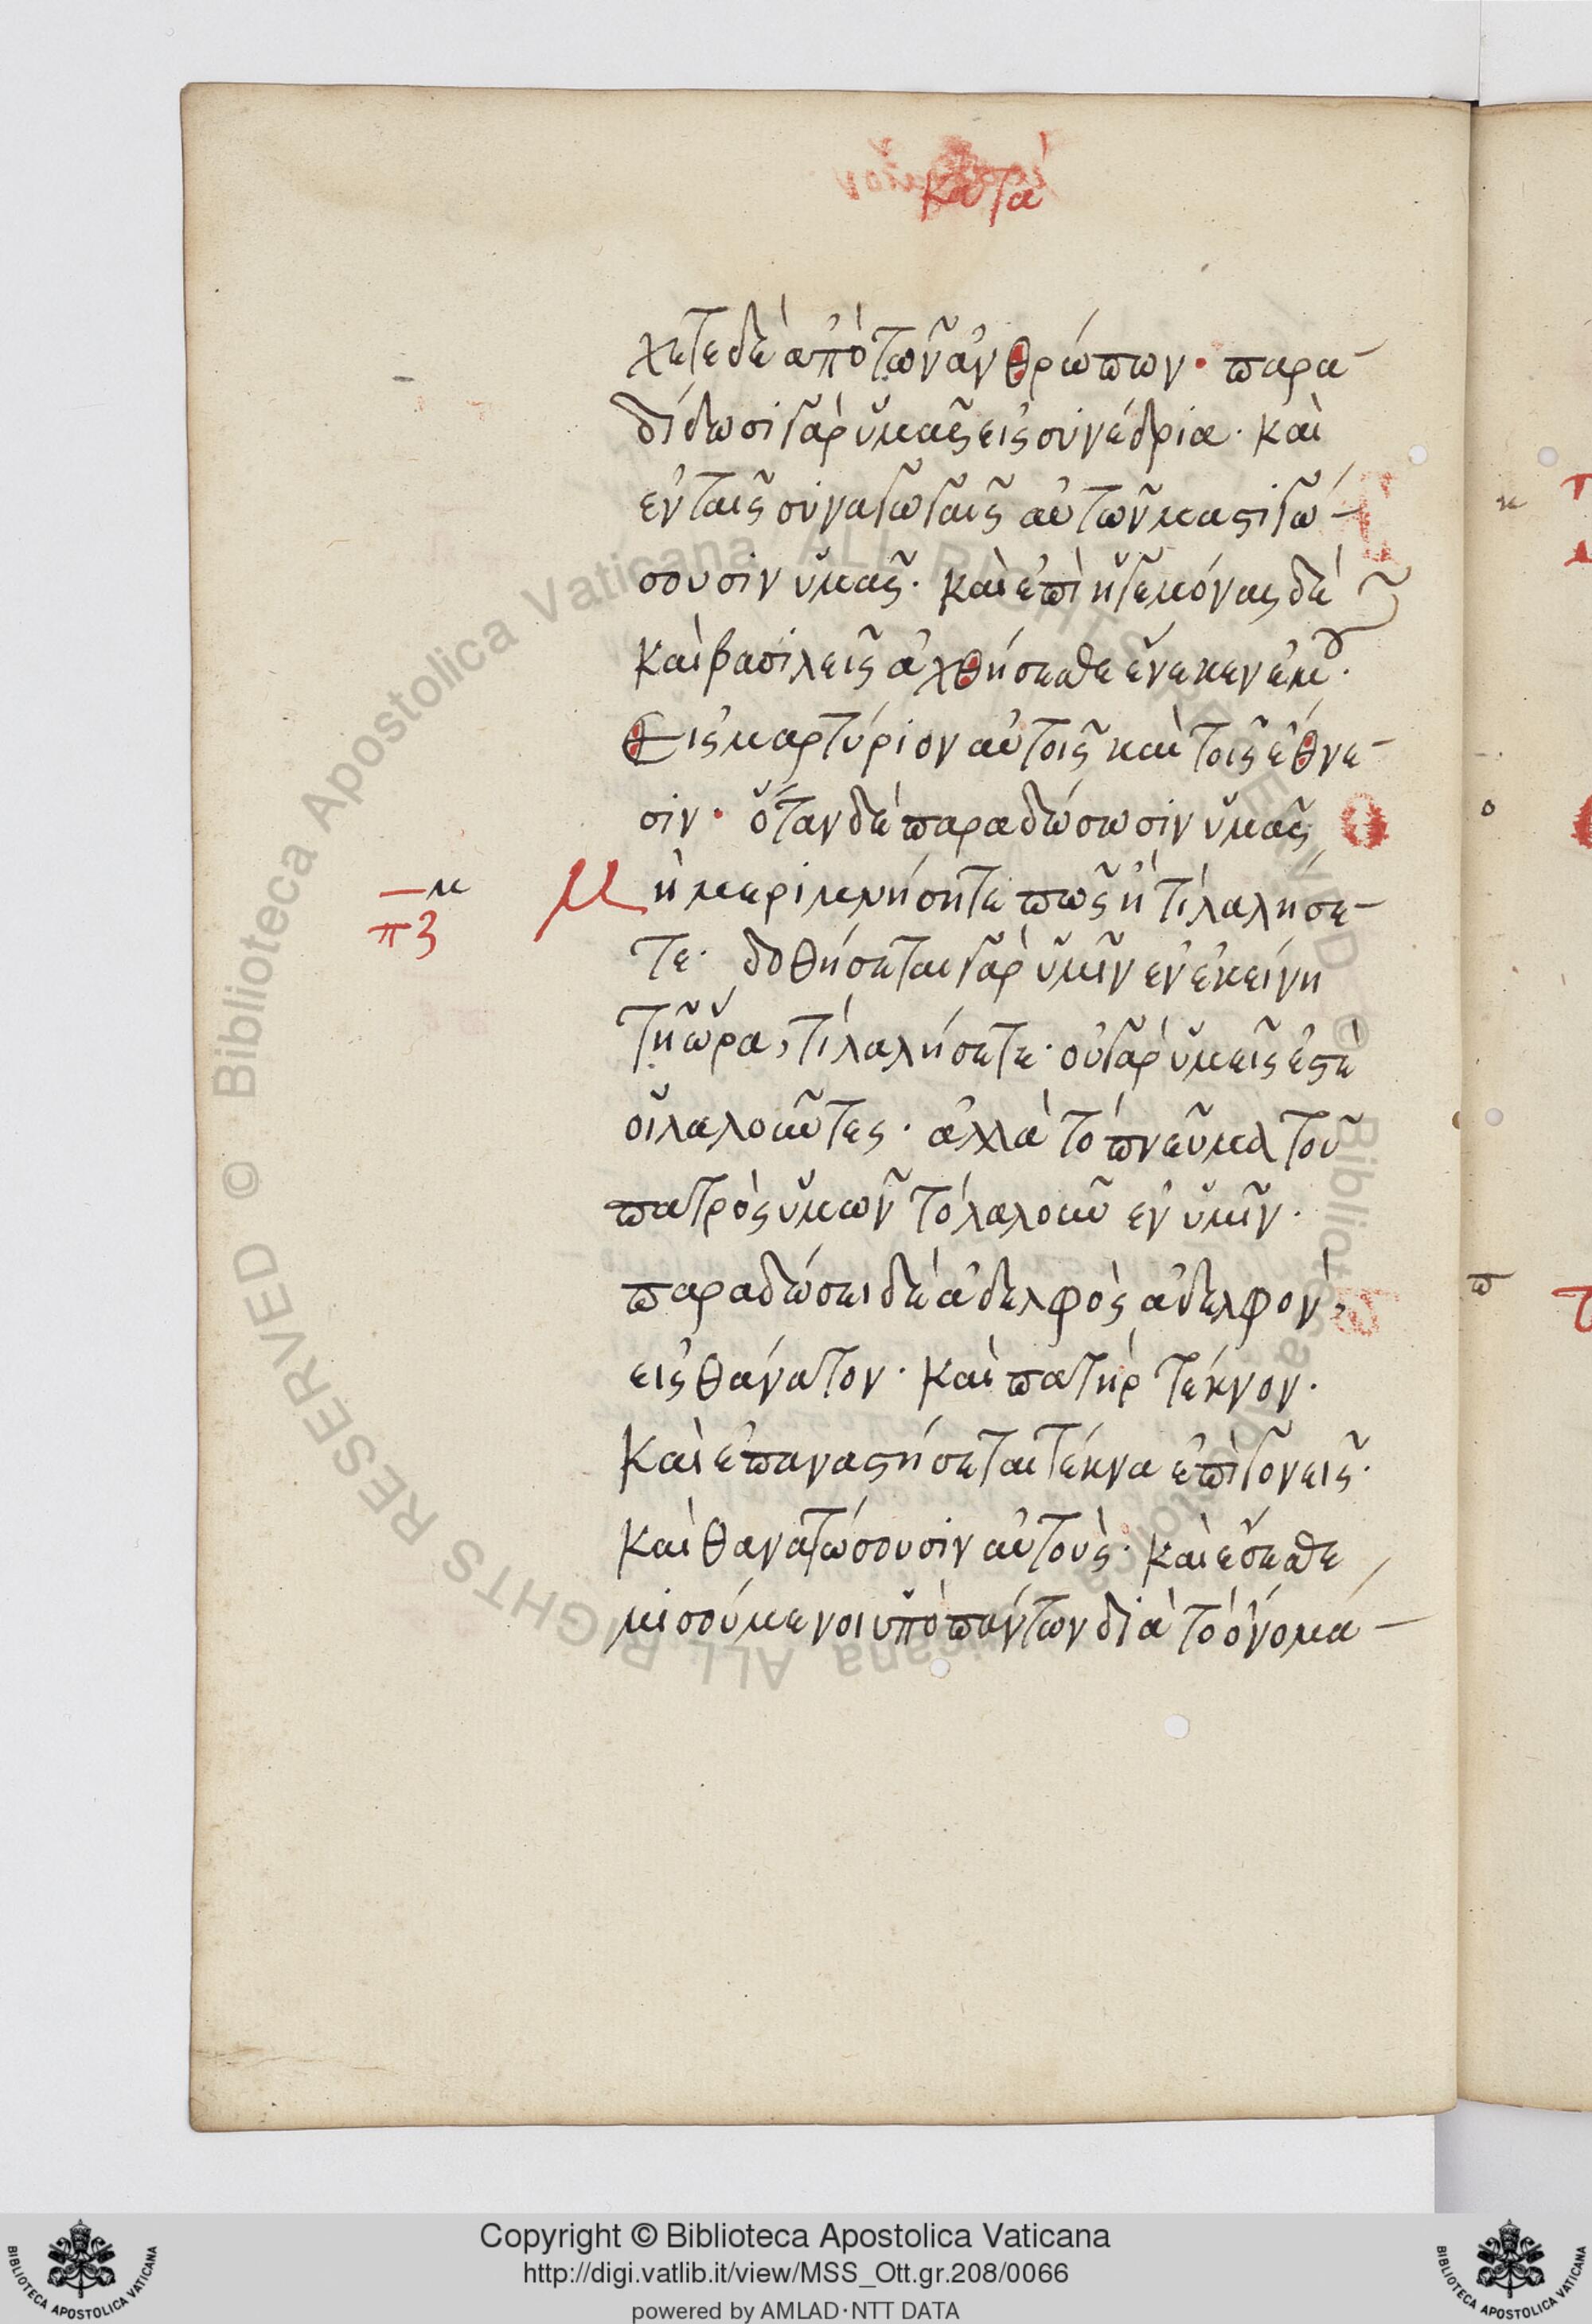 κατὰ
χετε δὲ ἀπὸ τῶν ἀνθρώπων· παρα-
δίδωσι γὰρ ὑμᾶς εἰς συνέδρια· καὶ
ἐν ταῖς συναγωγαῖς αὐτῶν μαστιγώ-
σουσιν ὑμᾶς· καὶ ἐπὶ ἡγεμόνας δὲ
καὶ βασιλεῖς ἀχθήσεσθε ἕνεκεν ἐμοῦ·
Εἰς μαρτύριον αὐτοῖς καὶ τοῖς ἔθνε-
σιν· ὅταν δὲ παραδώσωσιν ὑμᾶς
μ
πζ
Μὴ μεριμνήσητε πῶς ἢ τί λαλήσε-
τε· δοθήσεται γὰρ ὑμῖν ἐν ἐκείνη
τῆ ὥρα, τί λαλήσετε· οὐ γὰρ ὑμεῖς ἐστὲ
οἱ λαλοῦντες· ἀλλὰ τὸ πνεῦμα τοῦ
πατρὸς ὑμῶν τὸ λαλοῦν ἐν ὑμῖν·
παραδώσει δὲ ἀδελφὸς ἀδελφὸν,
εἰς θάνατον· καὶ πατὴρ τέκνον·
καὶ ἐπαναστήσεται τέκνα ἐπὶ γονεῖς·
καὶ θανατώσουσιν αὐτοὺς· καὶ ἔσεσθε
μισούμενοι ὑπὸ πάντων διὰ τὸ ὄνομά-
Copyright © Biblioteca Apostolica Vaticana
http://digi.vatlib.it/view/MSS_Ott.gr.208/0066
powered by AMLAD·NTT DATA
BIBLIOTECA APOSTOLICA VATICANA
BIBLIOTECA APOSTOLICA VATICANA
© Biblioteca Apostolica Vaticana ALL RIGHTS RESERVED © Biblioteca Apostolica Vaticana ALL RIGHTS RESERVED